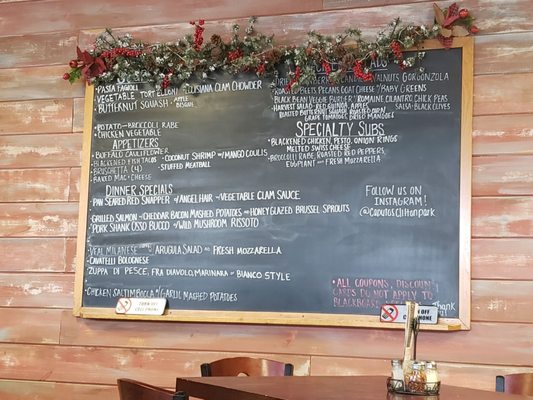 • Pasta Fagioli
• Vegetable Tortellini
• Louisiana Clam Chowder
• Butternut Squash w/ Apple
Walnuts Gorgonzola
Roasted Beets, Pecans Goat Cheese w/ Baby Greens
• Black Bean Veggie Burger
• Romaine Cilantro Chick Peas
• Harvest Salad Red Quinoa, Apples
Salsa Black Olives
Grape Tomatoes, Dried Mangoes
• Potato Broccoli Rabe
• Chicken Vegetable
Appetizers
• Buffalo Cauliflower
• Blackened Fish Tacos
• Coconut Shrimp w/ Mango Coulis
• Bruschetta (4)
• Stuffed Meatball
• Baked Mac & Cheese
Specialty Subs
• Blackened Chicken, Pesto, Onion Rings
Melted Swiss Cheese
• Broccoli Rabe Roasted Red Peppers,
Eggplant and Fresh Mozzarella
Dinner Specials
• Pan Seared Red Snapper w/ Angel Hair Vegetable Clam Sauce
• Grilled Salmon Cheddar Bacon Mashed Potatoes and Honey Glazed Brussel Sprouts
• Pork Shank Osso Bucco w/ Wild Mushroom Rissoto
Follow us on
Instagram!
@CaputosCliftonpark
• Veal Milanese Arugula Salad and Fresh Mozzarella
• Cavatelli Bolognese
Zuppa di Pesce, Fra Diavolo, Marinara or Bianco Style
• Chicken Saltimbocca w/ Garlic Mashed Potatoes
• All Coupons, Discount
Cards do not apply to
Blackboard
Thank
Turn off
Cell Phone
Turn off
Cell Phone